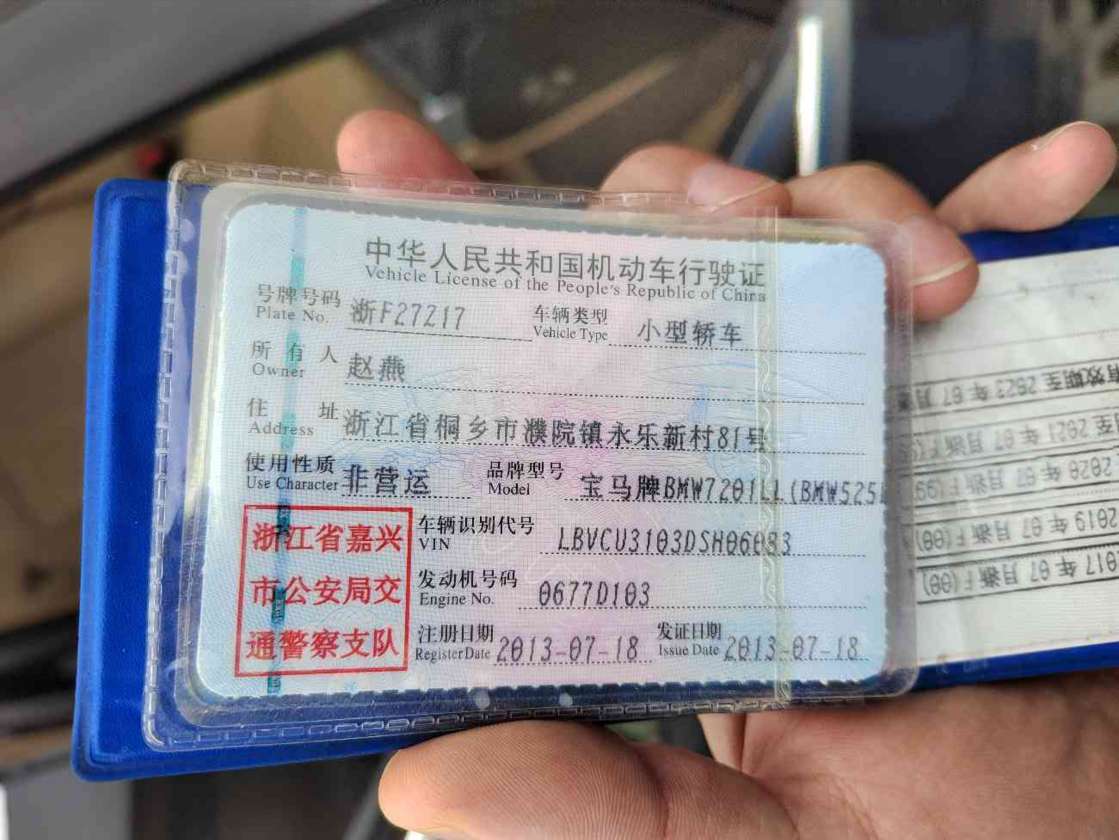 中华人民共和国机动车行驶证
Vehicle License of the People's Republic of China
号牌号码 浙F27217 车辆类型 小型轿车
Plate No. Vehicle Type
所有人 赵燕
Owner
住址 浙江省桐乡市濮院镇永乐新村81号
Address
使用性质 非营运 品牌型号 宝马牌BMW7201LL(BMW525L
Use Character Model
浙江省嘉兴
市公安局交
通警察支队
车辆识别代号 LBVCU3103DSH06083
VIN
发动机号码 0677D103
Engine No.
注册日期 2013-07-18 发证日期 2013-07-18
Register Date Issue Date
有效期至2023年07月
至2021年07月浙F
2020年07月浙F(99
2019年07月浙F(00)
017年07月浙F(00)